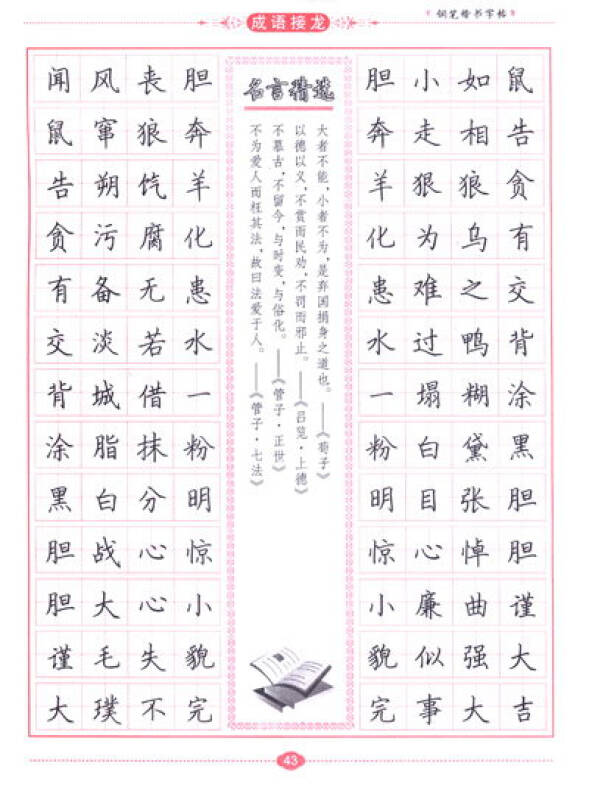 成语接龙
钢笔楷书字帖
闻风丧胆 胆小如鼠
鼠窜狼奔 奔走相告
告朔饩羊 羊狠狼贪
贪污腐化 化为乌有
有备无患 患难之交
交淡若水 水过鸭背
背城借一 一塌糊涂
涂脂抹粉 粉白黛黑
黑白分明 明目张胆
胆战心惊 惊心悼胆
胆大心小 小廉曲谨
谨毛失貌 貌似强大
大璞不完 完事大吉
名言精选
大者不能,小者不为,是弃国捐身之道也。——《荀子》
以德以义,不赏而民劝,不罚而邪止。——《吕览·上德》
不慕古,不留今,与时变,与俗化。——《管子·正世》
不为爱人而枉其法,故曰法爱于人。——《管子·七法》
43